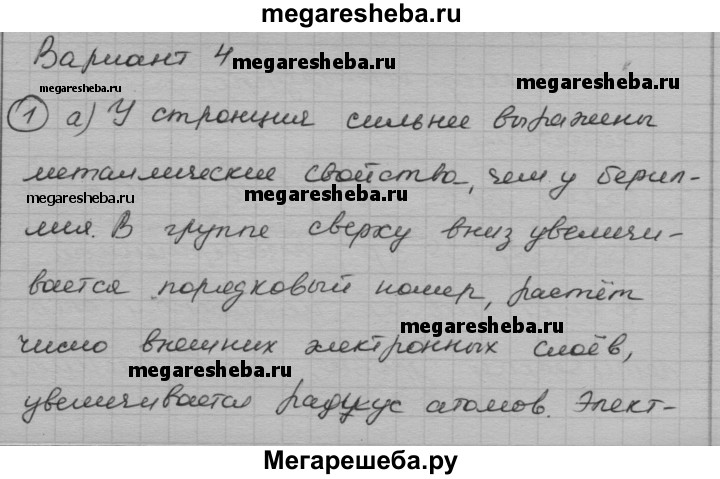 megaresheba.ru
Вариант 4
megaresheba.ru
megaresheba.ru
megaresheba.ru
① а) У стронция сильнее выражены
металлические свойства, чем у берил-
megaresheba.ru
megaresheba.ru
лия. В группе сверху вниз увеличи-
вается порядковый номер, растёт
число внешних электронных слоёв,
megaresheba.ru
megaresheba.ru
увеличивается радиус атомов. Элект-
Мегарешеба.ру